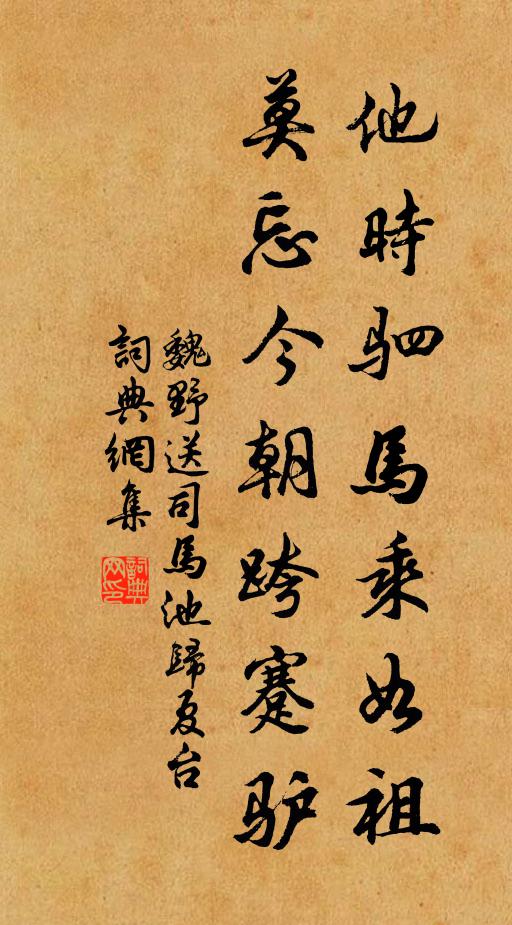 他時驷馬乘如祖
莫忘今朝跨蹇驴
魏野送司馬池歸夏台
詞典網集
詞典网印